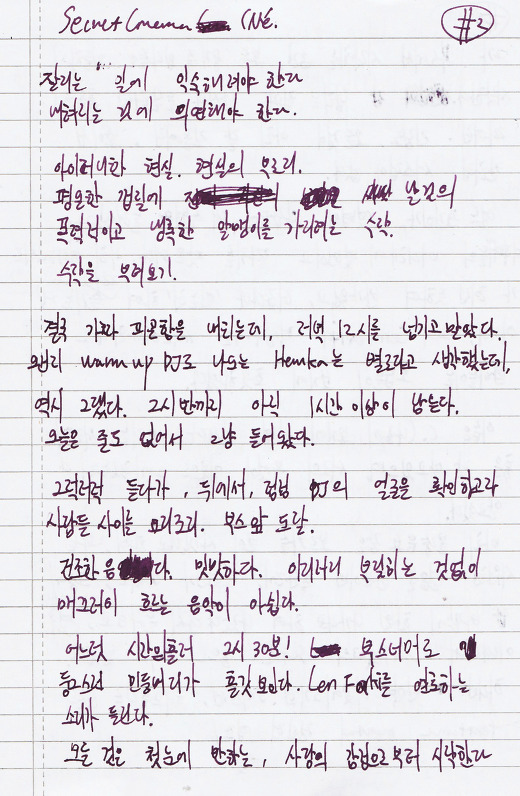 Secret Cinema Live. #2
잘리는 길에 익숙해져야 한다
버려지는 것에 의연해야 한다.
아이러니한 현실. 현실의 부조리.
평온한 껍질에 날것의
폭력적이고 냉혹한 알맹이를 가리려는 수작.
수작을 부려보기.
결국 가짜 피곤함을 버티는데, 저녁 12시를 넘기고 말았다.
왠지 warm up DJ로 나오는 Hemka는 별로라고 생각했는데,
역시 그랬다. 2시반까지 아직 1시간 이상이 남는다.
오늘은 줄도 없어서 그냥 들어왔다.
그럭저럭 듣다가, 뒤에서, 점점 DJ의 얼굴을 확인하고자
사람들 사이를 요리조리. 부스앞 도착.
건조한 음 다. 밋밋하다. 이리저리 부딪히는 것없이
매끄러이 흐르는 음악이 아쉽다.
어느덧 시간이흘러 2시 30분! 부스너머로
둥그스런 민둥머리가 흘깃 보인다. Len Faki를 연호하는
소리가 들린다.
모든 것은 첫눈에 반하는, 사랑의 감정으로부터 시작한다